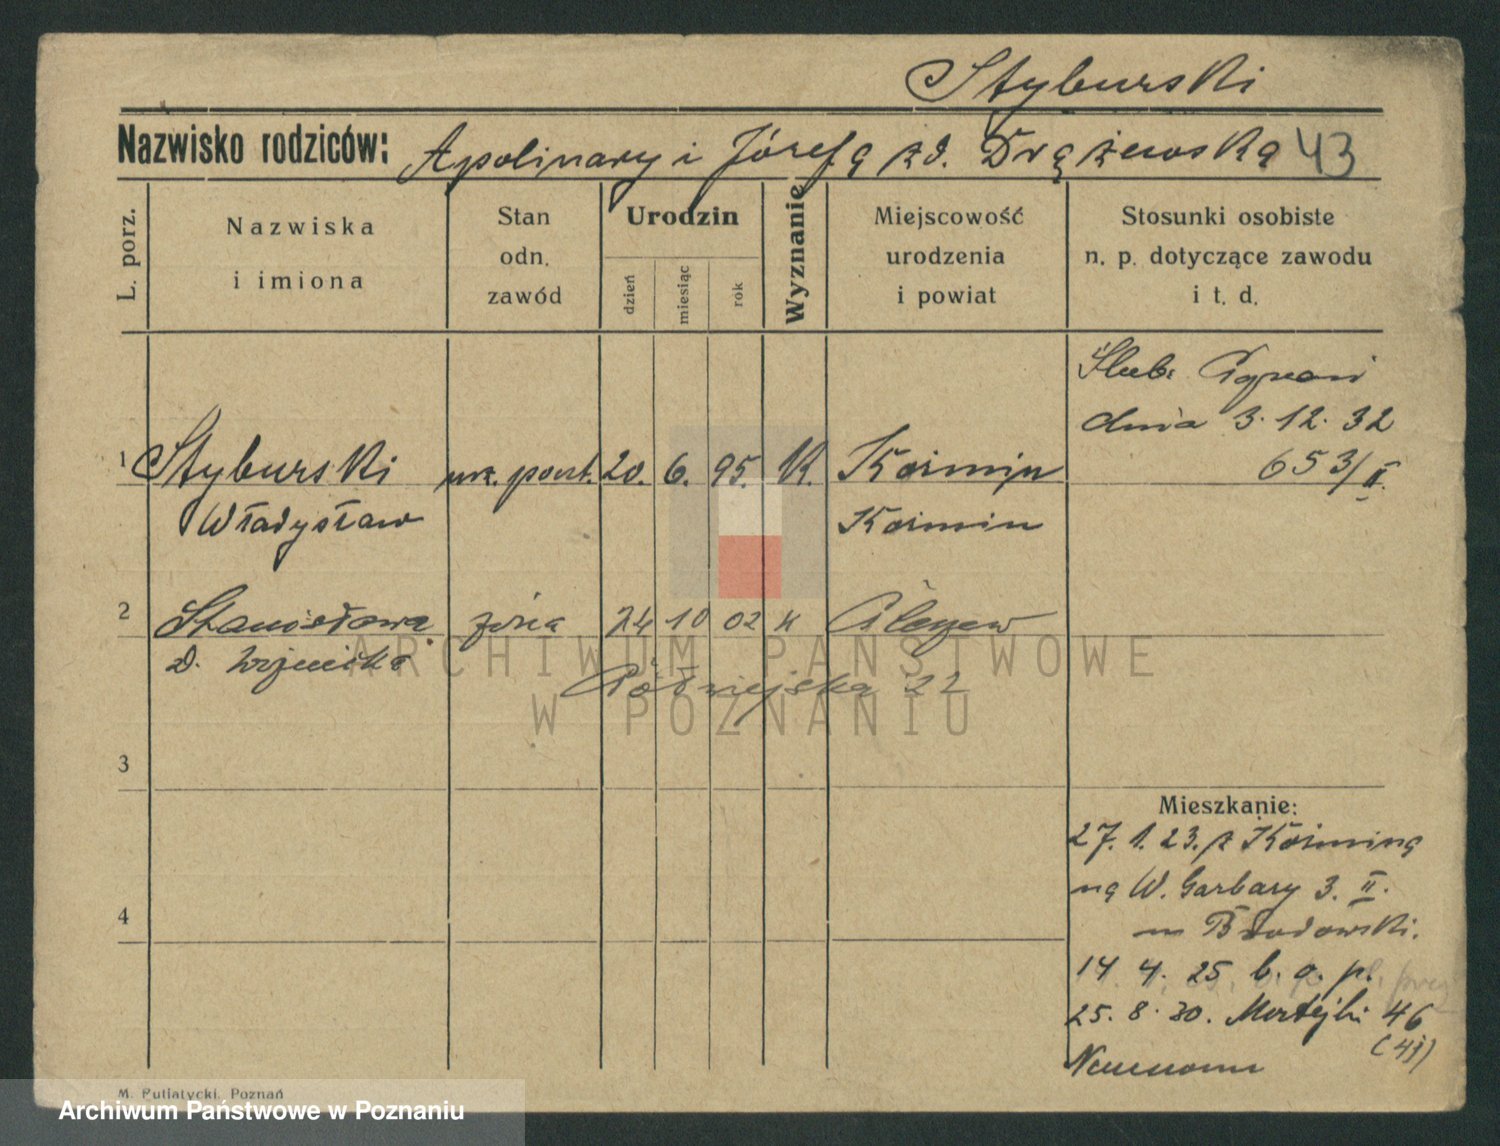 Styburski
Nazwisko rodziców: Apolinary i Józefa zd. Drążewska 43
L. porz.
Nazwiska i imiona
Stan odn. zawód
Urodzin
dzień
miesiąc
rok
Wyznanie
Miejscowość urodzenia i powiat
Stosunki osobiste n. p. dotyczące zawodu i t. d.
Ślub:
dnia 3.12.32
653/II.
1 Styburski urz. poczt. 20. 6. 95. K. Koźmin
Władysław Koźmin
2 Stanisława żona 24 10 02 K
d. Wojnicka
22
3
Mieszkanie:
27. 1. 23. z Koźmina
na W. Garbary 3. II.
4
m Brodowski.
14 4. 25. b. o. p.
25. 8. 30. 46
(41)
M. Putiatycki, Poznań
ARCHIWUM PAŃSTWOWE
W POZNANIU
Archiwum Państwowe w Poznaniu